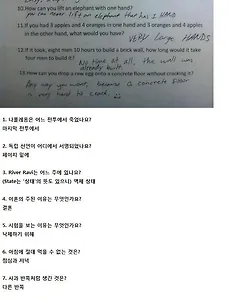 10.How can you lift an elephant with one hand?
you can never lift an elephant that has 1 HAND
11.If you had 3 apples and 4 oranges in one hand and 3 oranges and 4 apples
in the other hand, what would you have?
VERY Large HANDS
12.If it took, eight men 10 hours to build a brick wall, how long would it take
four men to build it?
No time at all, the wall was
already built.
13.How can you drop a raw egg onto a concrete floor without cracking it?
Any way you want, because a concrete floor
is very hard to crack.
1. 나폴레옹은 어느 전투에서 죽었나요?
마지막 전투에서
2. 독립 선언이 어디에서 서명되었나요?
페이지 밑에
3. River Ravi는 어느 주에 있나요?
(State는 '상태'의 뜻도 있으니) 액체 상태
4. 이혼의 주된 이유는 무엇인가요?
결혼
5. 시험을 보는 이유는 무엇인가요?
낙제하기 위해
6. 아침에 절대 먹을 수 없는 것은?
점심과 저녁
7. 사과 반쪽처럼 생긴 것은?
다른 반쪽